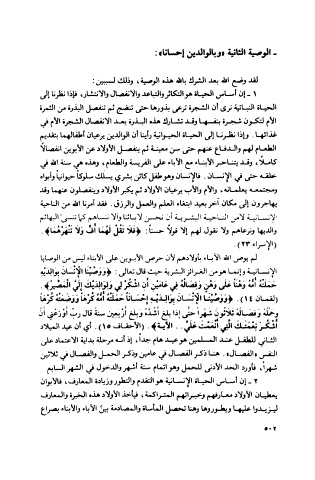 ـ الوصية الثانية ﴿وبالوالدين إحسانا﴾:
لقد وضع الله بعد الشرك بالله هذه الوصية، وذلك لسببين:
١ ـ إن أساس الحياة هو التكاثر والتباعد والانفصال والانتشار، فإذا نظرنا إلى
الحياة النباتية نرى أن الشجرة ترعى بذورها حتى تنضج ثم تنفصل البذرة من الثمرة
لتكون شجرة بنفسها وقد تشارك هذه البذرة بعد الانفصال الشجرة الأم في
غذائها. وإذا نظرنا إلى الحياة الحيوانية رأينا أن الوالدين يرعيان أطفالهما بتقديم
الطعام لهم والدفاع عنهم حتى سن معينة ثم ينفصل الأولاد عن الأبوين انفصالاً
كاملاً، وقد يتناحر الأبناء مع الآباء على الفريسة والطعام، وهذه هي سنة الله في
خلقه حتى في الإنسان. فالإنسان وهو طفل كائن بشري يسلك سلوكاً حيوانياً وأبواه
ومجتمعه يعلمانه، والأم والأب يرعيان الأولاد ثم يكبر الأولاد وينفصلون عنهما وقد
يهاجرون إلى مكان آخر بعيد ابتغاء العلم والعمل والرزق. فقد أمرنا الله من الناحية
الإنسانية لا من الناحية البشرية أن نحسن لآبائنا وألا ننساهم كما تنسى البهائم
والديها ونرعاهم ولا نقول لهم إلا قولاً حسناً: ﴿فَلَا تَقُل لَّهُمَا أُفٍّ وَلَا تَنْهَرْهُمَا﴾.
(الإسراء ٢٣).
لم يوص الله الآباء بأولادهم لأن حرص الأبوين على الأبناء ليس من الوصايا
الإنسانية وإنما هو من الغرائز البشرية حيث قال تعالى: ﴿وَوَصَّيْنَا الْإِنسَانَ بِوَالِدَيْهِ
حَمَلَتْهُ أُمُّهُ وَهْنًا عَلَىٰ وَهْنٍ وَفِصَالُهُ فِي عَامَيْنِ أَنِ اشْكُرْ لِي وَلِوَالِدَيْكَ إِلَيَّ الْمَصِيرُ﴾.
(لقمان ١٤). ﴿وَوَصَّيْنَا الْإِنسَانَ بِوَالِدَيْهِ إِحْسَانًا حَمَلَتْهُ أُمُّهُ كُرْهًا وَوَضَعَتْهُ كُرْهًا
وَحَمْلُهُ وَفِصَالُهُ ثَلَاثُونَ شَهْرًا حَتَّىٰ إِذَا بَلَغَ أَشُدَّهُ وَبَلَغَ أَرْبَعِينَ سَنَةً قَالَ رَبِّ أَوْزِعْنِي أَنْ
أَشْكُرَ نِعْمَتَكَ الَّتِي أَنْعَمْتَ عَلَيَّ . . الآية﴾. (الأحقاف ١٥). أي أن عيد الميلاد
الثاني للطفل عند المسلمين هو عيد هام جداً، إذ أنه مرحلة بداية الاعتماد على
النفس والفصال، هنا ذكر الفصال في عامين وذكر الحمل والفصال في ثلاثين
شهراً، فأورد الحد الأدنى للحمل وهو اتمام ستة أشهر والدخول في الشهر السابع
٢ ـ إن أساس الحياة الإنسانية هو التقدم والتطور وزيادة المعارف، فالأبوان
يعطيان الأولاد معارفهم وخبراتهم المتراكمة، فيأخذ الأولاد هذه الخبرة والمعارف
ليزيدوا عليها ويطوروها وهنا تحصل المأساة والمصادمة بين الآباء والأبناء بصراع
٥٠٢